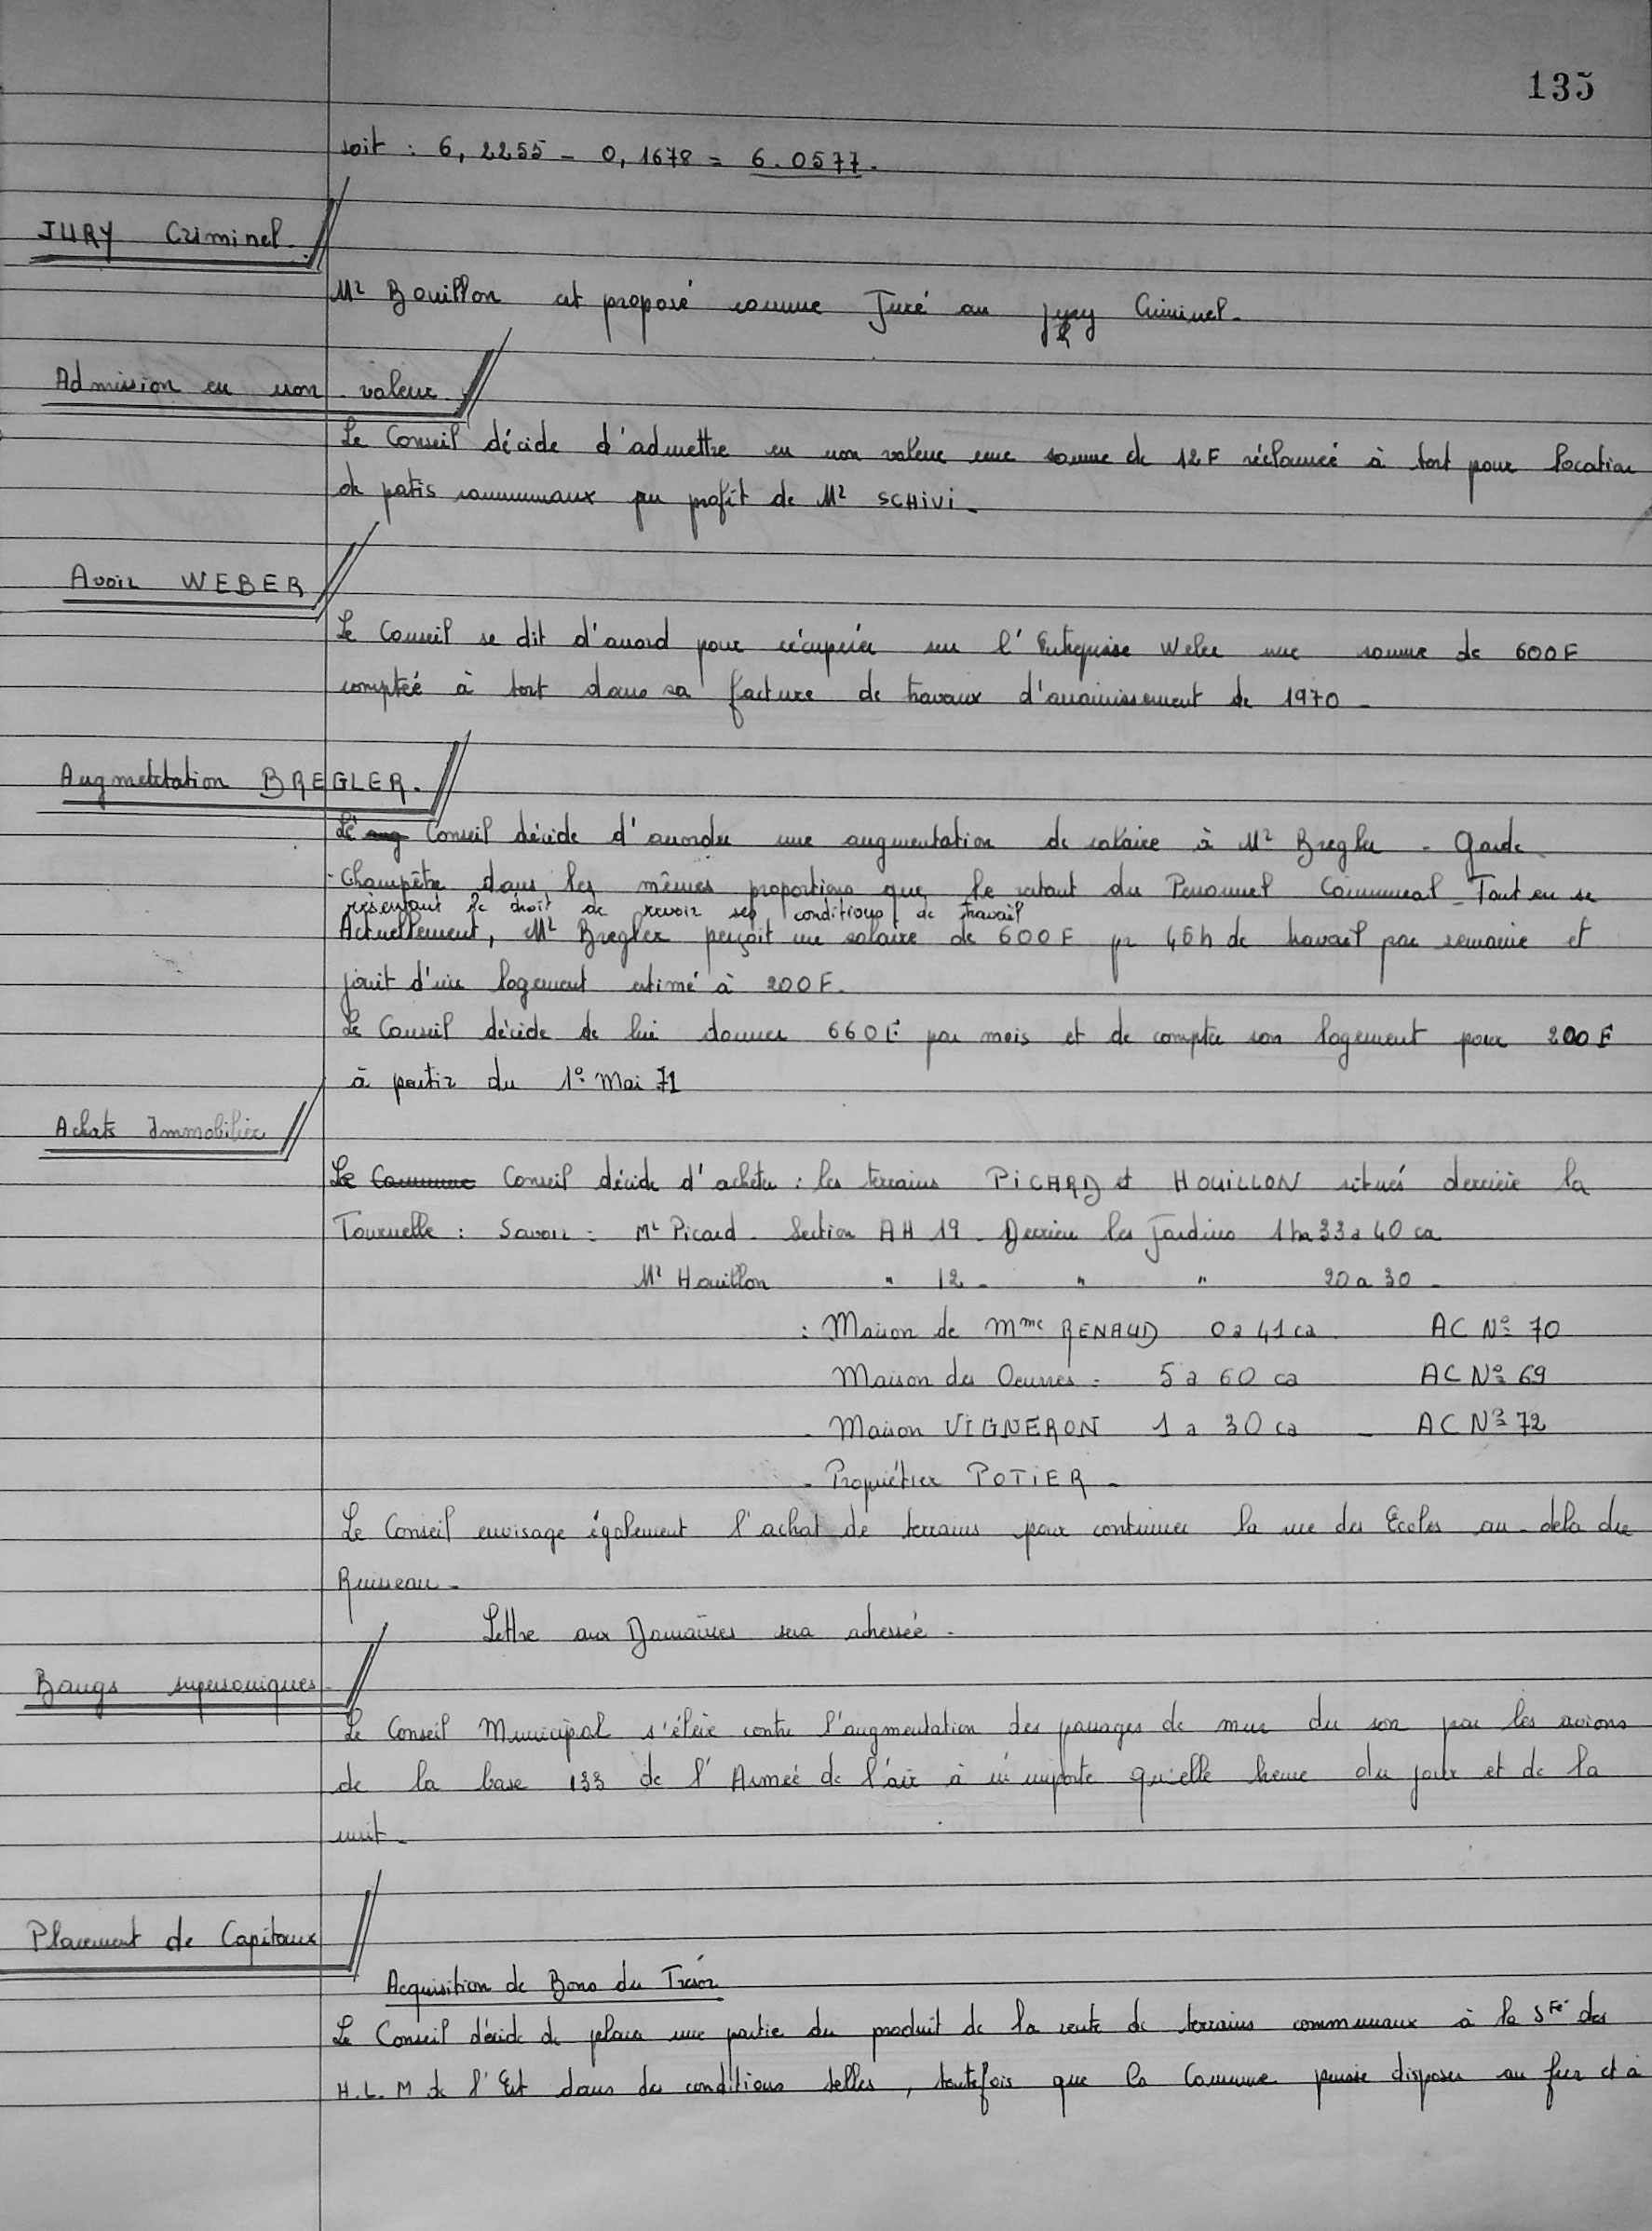 135
soit : 6,2255 - 0,1678 = 6.0577.
JURY Criminel.
Mr Bouillon est proposé comme Juré au jury Criminel.
Admission en non-valeur.
Le Conseil décide d'admettre en non valeur une somme de 12F réclamée à tort pour location
de patis communaux au profit de Mr SCHIVI.
Avoir WEBER
Le Conseil se dit d'accord pour récupérer sur l'Entreprise Weber une somme de 600F
comptée à tort dans sa facture de travaux d'assainissement de 1970 -
Augmentation BREGLER.
Le aug Conseil décide d'accorder une augmentation de salaire à Mr Bregler - Garde
Champêtre dans les mêmes proportions que le restant du Personnel Communal - Tout en se
réservant le droit de revoir ses conditions de travail
Actuellement, Mr Bregler perçoit un salaire de 600F pr 46h de travail par semaine et
jouit d'un logement estimé à 200F.
Le Conseil décide de lui donner 660F par mois et de compter son logement pour 200F
à partir du 1° Mai 71
Achats Immobilier
Le Commune Conseil décide d'acheter : les terrains PICARD et HOUILLON situés derrière la
Tournelle : Savoir : Mr Picard - Section AH 19 - Derrière les Jardins 1ha 33a 40 ca
Mr Houillon " 12 - " " 20 a 30 -
: Maison de Mme RENAUD 0a 41ca AC N° 70
Maison des Oeuvres - 5a 60 ca AC N° 69
- Maison VIGNERON 1 a 30 ca - AC N° 72
- Propriétier POTIER -
Le Conseil envisage également l'achat de terrains pour continuer la rue des Ecoles au-dela du
Ruisseau -
Lettre aux Domaines sera adressée -
Bangs supersoniques -
Le Conseil Municipal s'élève contre l'augmentation des passages de mur du son par les avions
de la base 133 de l'Armée de l'air à n'importe qu'elle heure du jour et de la
nuit -
Placement de Capitaux
Acquisition de Bons du Trésor
Le Conseil décide de placer une partie du produit de la vente de terrains communaux à la Sté des
H.L.M de l'Est dans des conditions telles, toutefois que la Commune puisse disposer au fur et à